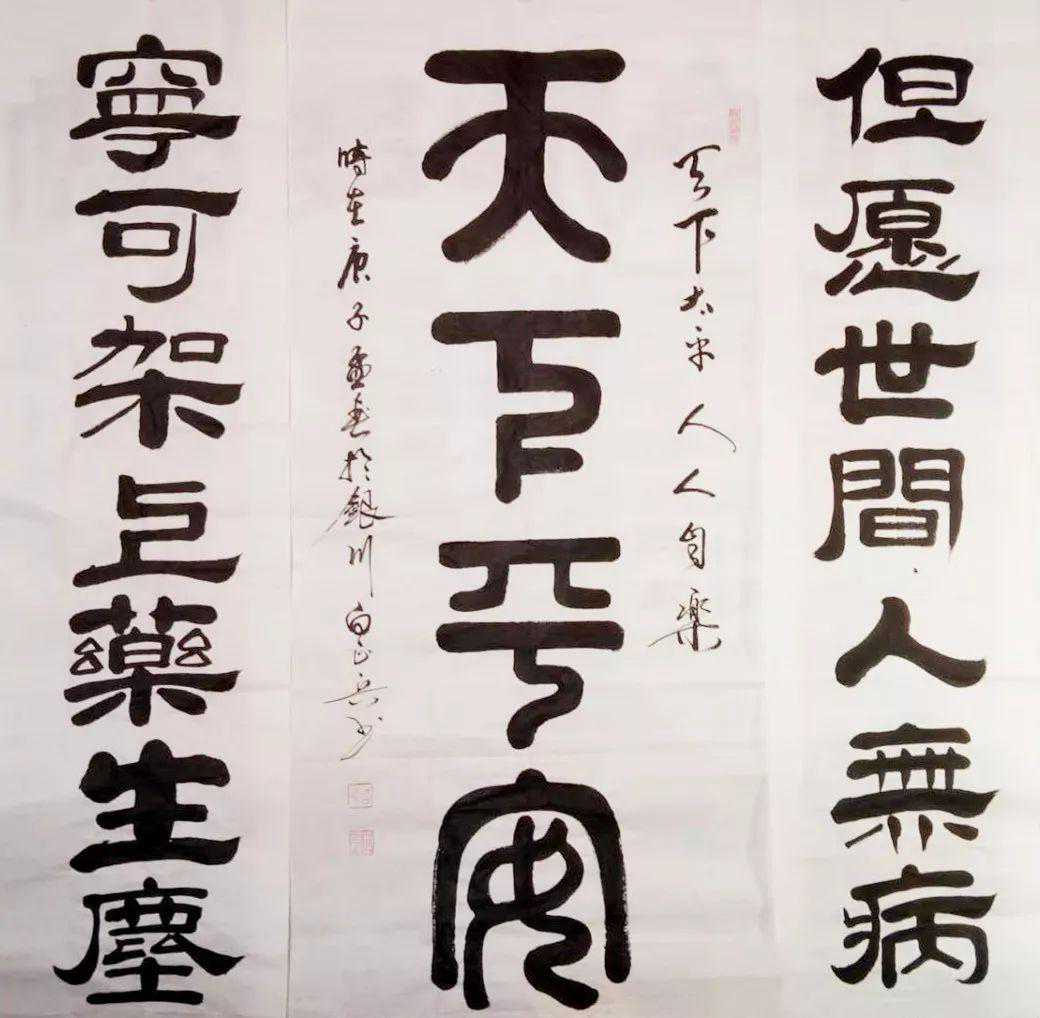 但愿世間人無病
天下太平 人人自樂
天下平安
時在庚子孟春於銀川 白正兵书
寧可架上藥生塵